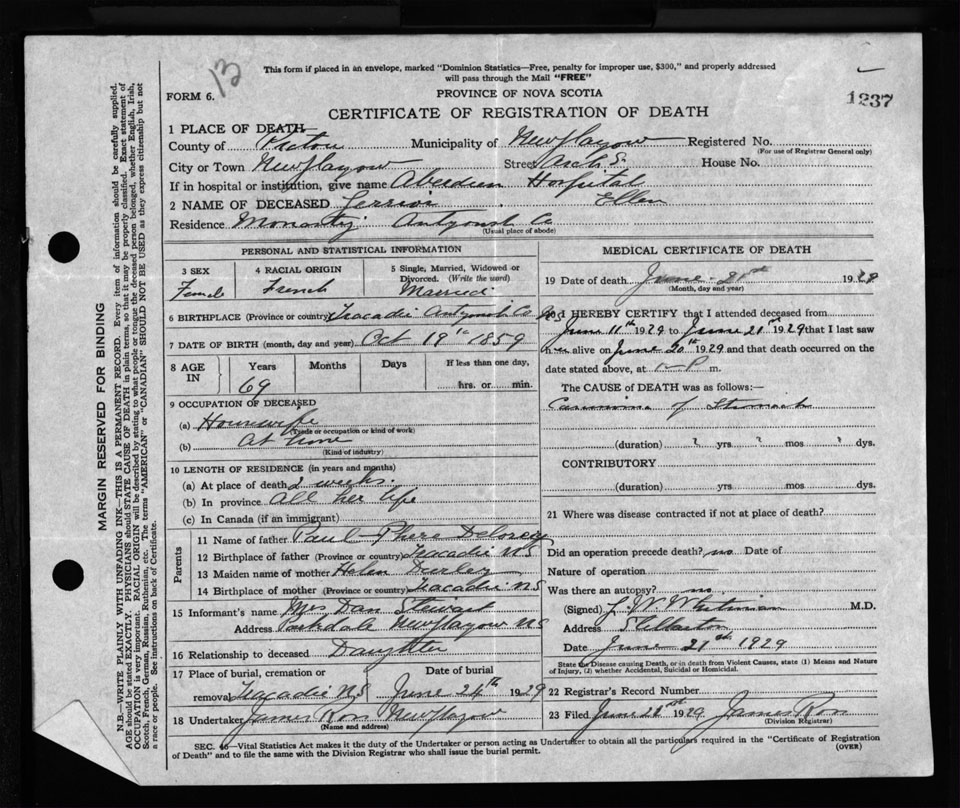 13
This form if placed in an envelope, marked "Dominion Statistics—Free, penalty for improper use, $300," and properly addressed
will pass through the Mail "FREE"
FORM 6.
PROVINCE OF NOVA SCOTIA
1237
CERTIFICATE OF REGISTRATION OF DEATH
1 PLACE OF DEATH—
County of Pictou Municipality of New Glasgow Registered No.
(For use of Registrar General only)
City or Town New Glasgow Street Arch S. House No.
If in hospital or institution, give name Aberdeen Hospital
2 NAME OF DECEASED Ellen
Residence Monastry Antigonish Co
(Usual place of abode)
PERSONAL AND STATISTICAL INFORMATION
3 SEX
Female
4 RACIAL ORIGIN
French
5 Single, Married, Widowed or
Divorced. (Write the word)
Married
6 BIRTHPLACE (Province or country) Tracadie Antigonish Co N.S.
7 DATE OF BIRTH (month, day and year) Oct 19th 1859
8 AGE IN
Years Months Days If less than one day,
69 hrs. or min.
9 OCCUPATION OF DECEASED
(a) Housewife
(Trade or occupation or kind of work)
(b) At home
(Kind of industry)
10 LENGTH OF RESIDENCE (in years and months)
(a) At place of death 2 weeks
(b) In province all her life
(c) In Canada (if an immigrant)
Parents
11 Name of father Paul
12 Birthplace of father (Province or country) Tracadie N S
13 Maiden name of mother Helen
14 Birthplace of mother (Province or country) Tracadie N S
15 Informant's name Mrs Dan Stewart
Address Parkdale New Glasgow N S
16 Relationship to deceased Daughter
17 Place of burial, cremation or Date of burial
removal Tracadie N S June 24th 1929
18 Undertaker James Ross New Glasgow
(Name and address)
MEDICAL CERTIFICATE OF DEATH
19 Date of death June 1929
(Month, day and year)
20 I HEREBY CERTIFY that I attended deceased from
June 11th 1929 to June 21st 1929 that I last saw
her alive on June 20th 1929 and that death occurred on the
date stated above, at m.
The CAUSE of DEATH was as follows:—
Carcinoma of Stomach
(duration) ? yrs ? mos ? dys.
CONTRIBUTORY
(duration) yrs. mos dys.
21 Where was disease contracted if not at place of death?
Did an operation precede death? no Date of
Nature of operation
Was there an autopsy? no
(Signed) M.D.
Address Stellarton
Date June 21st 1929
State the Disease causing Death, or in death from Violent Causes, state (1) Means and Nature
of Injury, (2) whether Accidental, Suicidal or Homicidal.
22 Registrar's Record Number
23 Filed June 1929 James Ross
(Division Registrar)
SEC. 46—Vital Statistics Act makes it the duty of the Undertaker or person acting as Undertaker to obtain all the particulars required in the "Certificate of Registration
of Death" and to file the same with the Division Registrar who shall issue the burial permit.
(OVER)
MARGIN RESERVED FOR BINDING
N.B.—WRITE PLAINLY WITH UNFADING INK—THIS IS A PERMANENT RECORD. Every item of information should be carefully supplied.
AGE should be stated EXACTLY. PHYSICIANS should STATE CAUSE OF DEATH in plain terms, so that it may be properly classified. Exact statement of
OCCUPATION is very important. RACIAL ORIGIN will be described by stating to what people or tongue the deceased person belonged, whether English, Irish,
Scotch, French, German, Russian, Ruthenian, etc. The terms "AMERICAN" or "CANADIAN" SHOULD NOT BE USED as they express citizenship but not
a race or people. See instructions on back of Certificate.